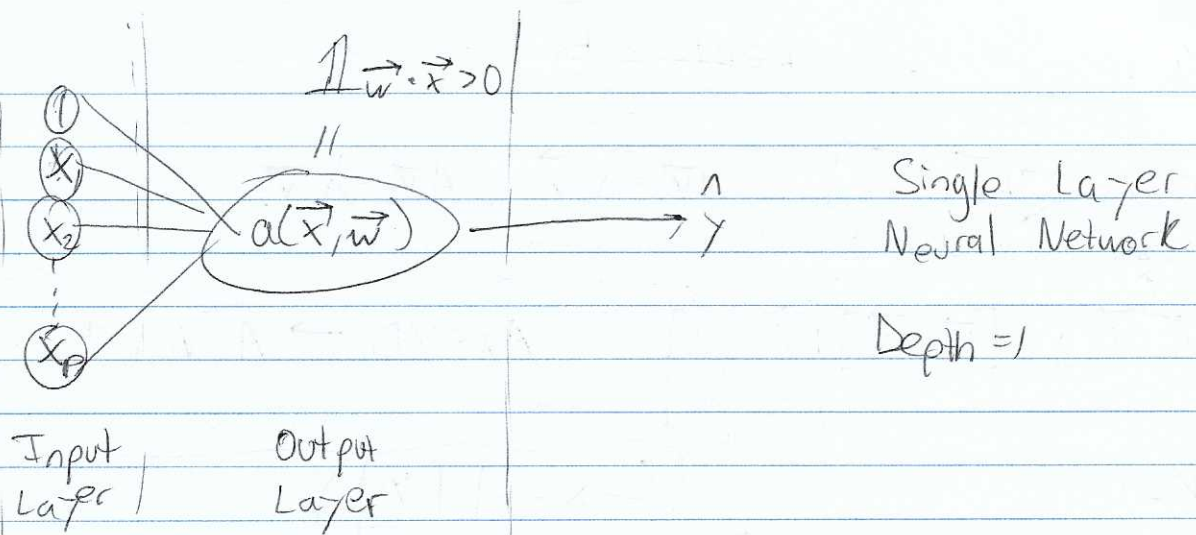 𝟙 w⃗·x⃗ >0
1
x₁
x₂
xₚ
||
a(x⃗, w⃗)
ŷ
Single Layer
Neural Network
Depth =1
Input
Layer
Output
Layer